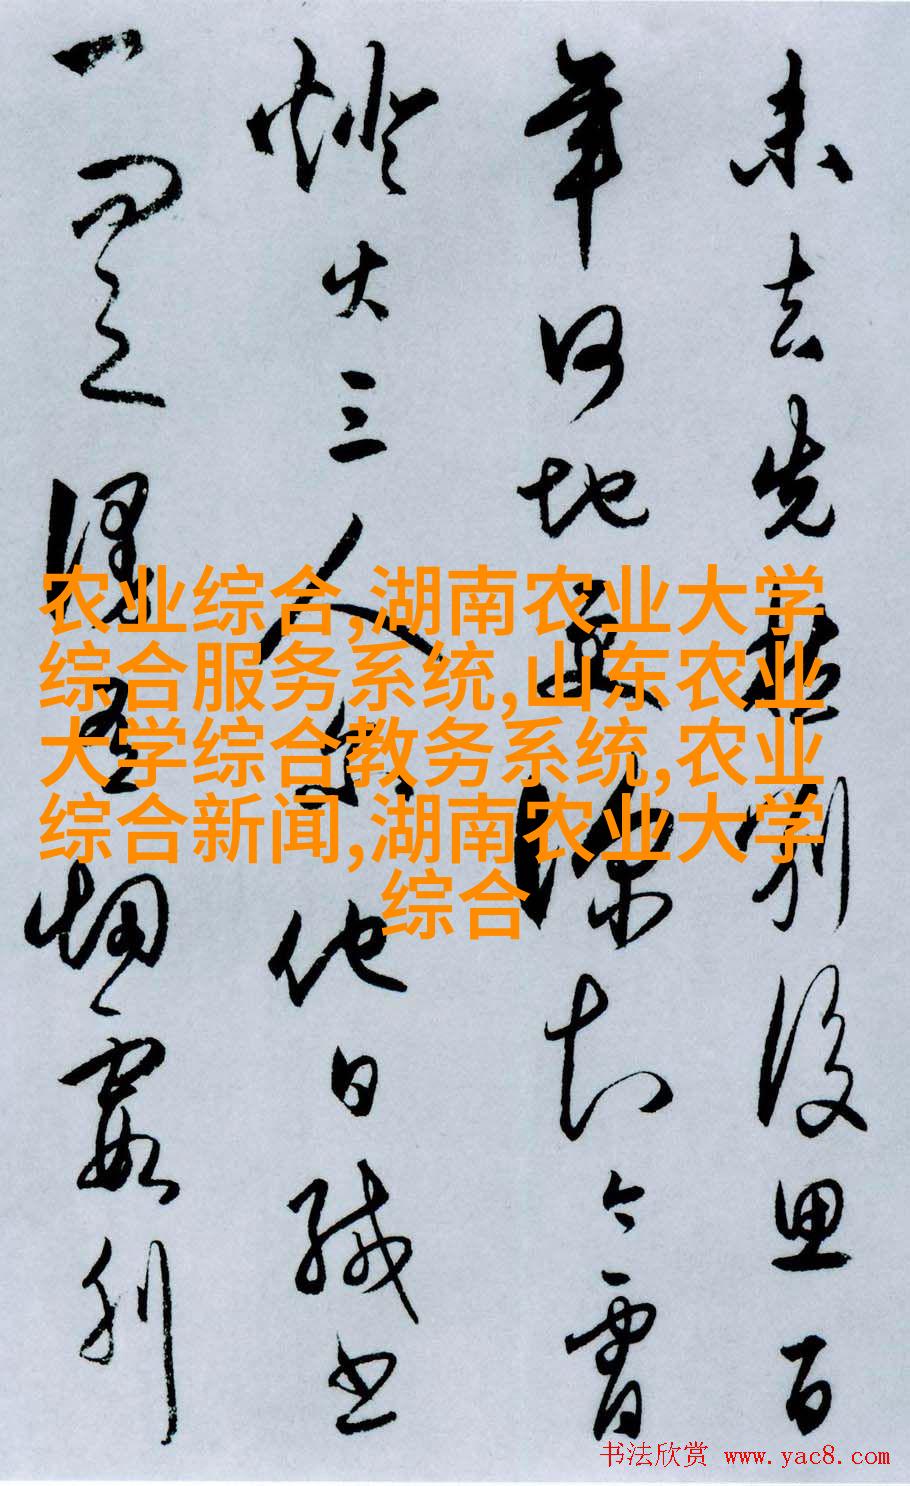 未去先別後思百
年何地更深知今宵
燈火三人尔他日緘書
一問之烟霞列
农业综合,湖南农业大学
综合服务系统,山东农业
大学综合教务系统,农业
综合新闻,湖南农业大学
综合
书法欣赏 www.yac8.com